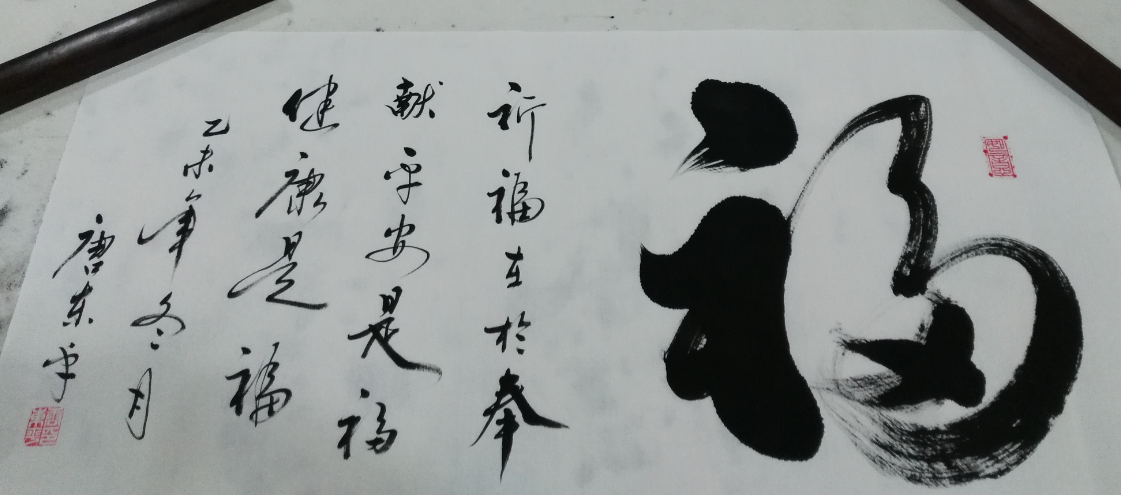 福
祈福在於奉
献平安是福
健康是福
乙未年冬月
唐东平